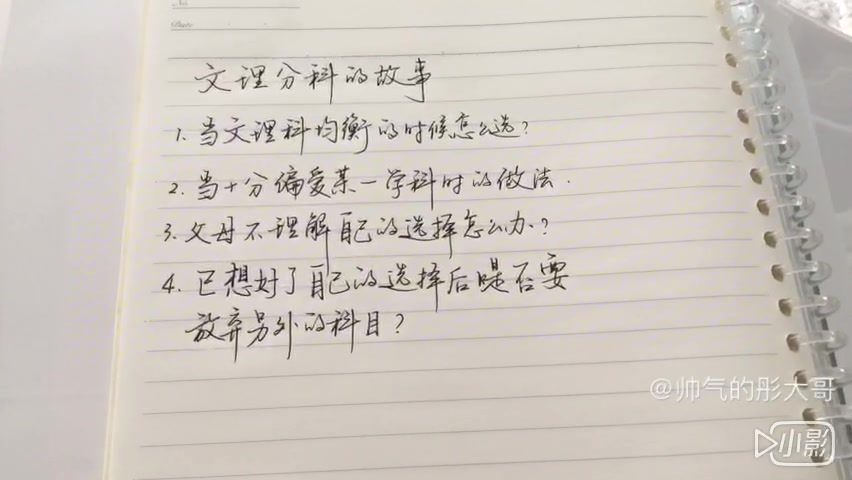 No
Date
文理分科的故事
1. 当文理科均衡的时候怎么选?
2. 当十分偏爱某一学科时的做法.
3. 父母不理解自己的选择怎么办?
4. 已想好了自己的选择后是否要
放弃另外的科目?
@帅气的彤大哥
小影